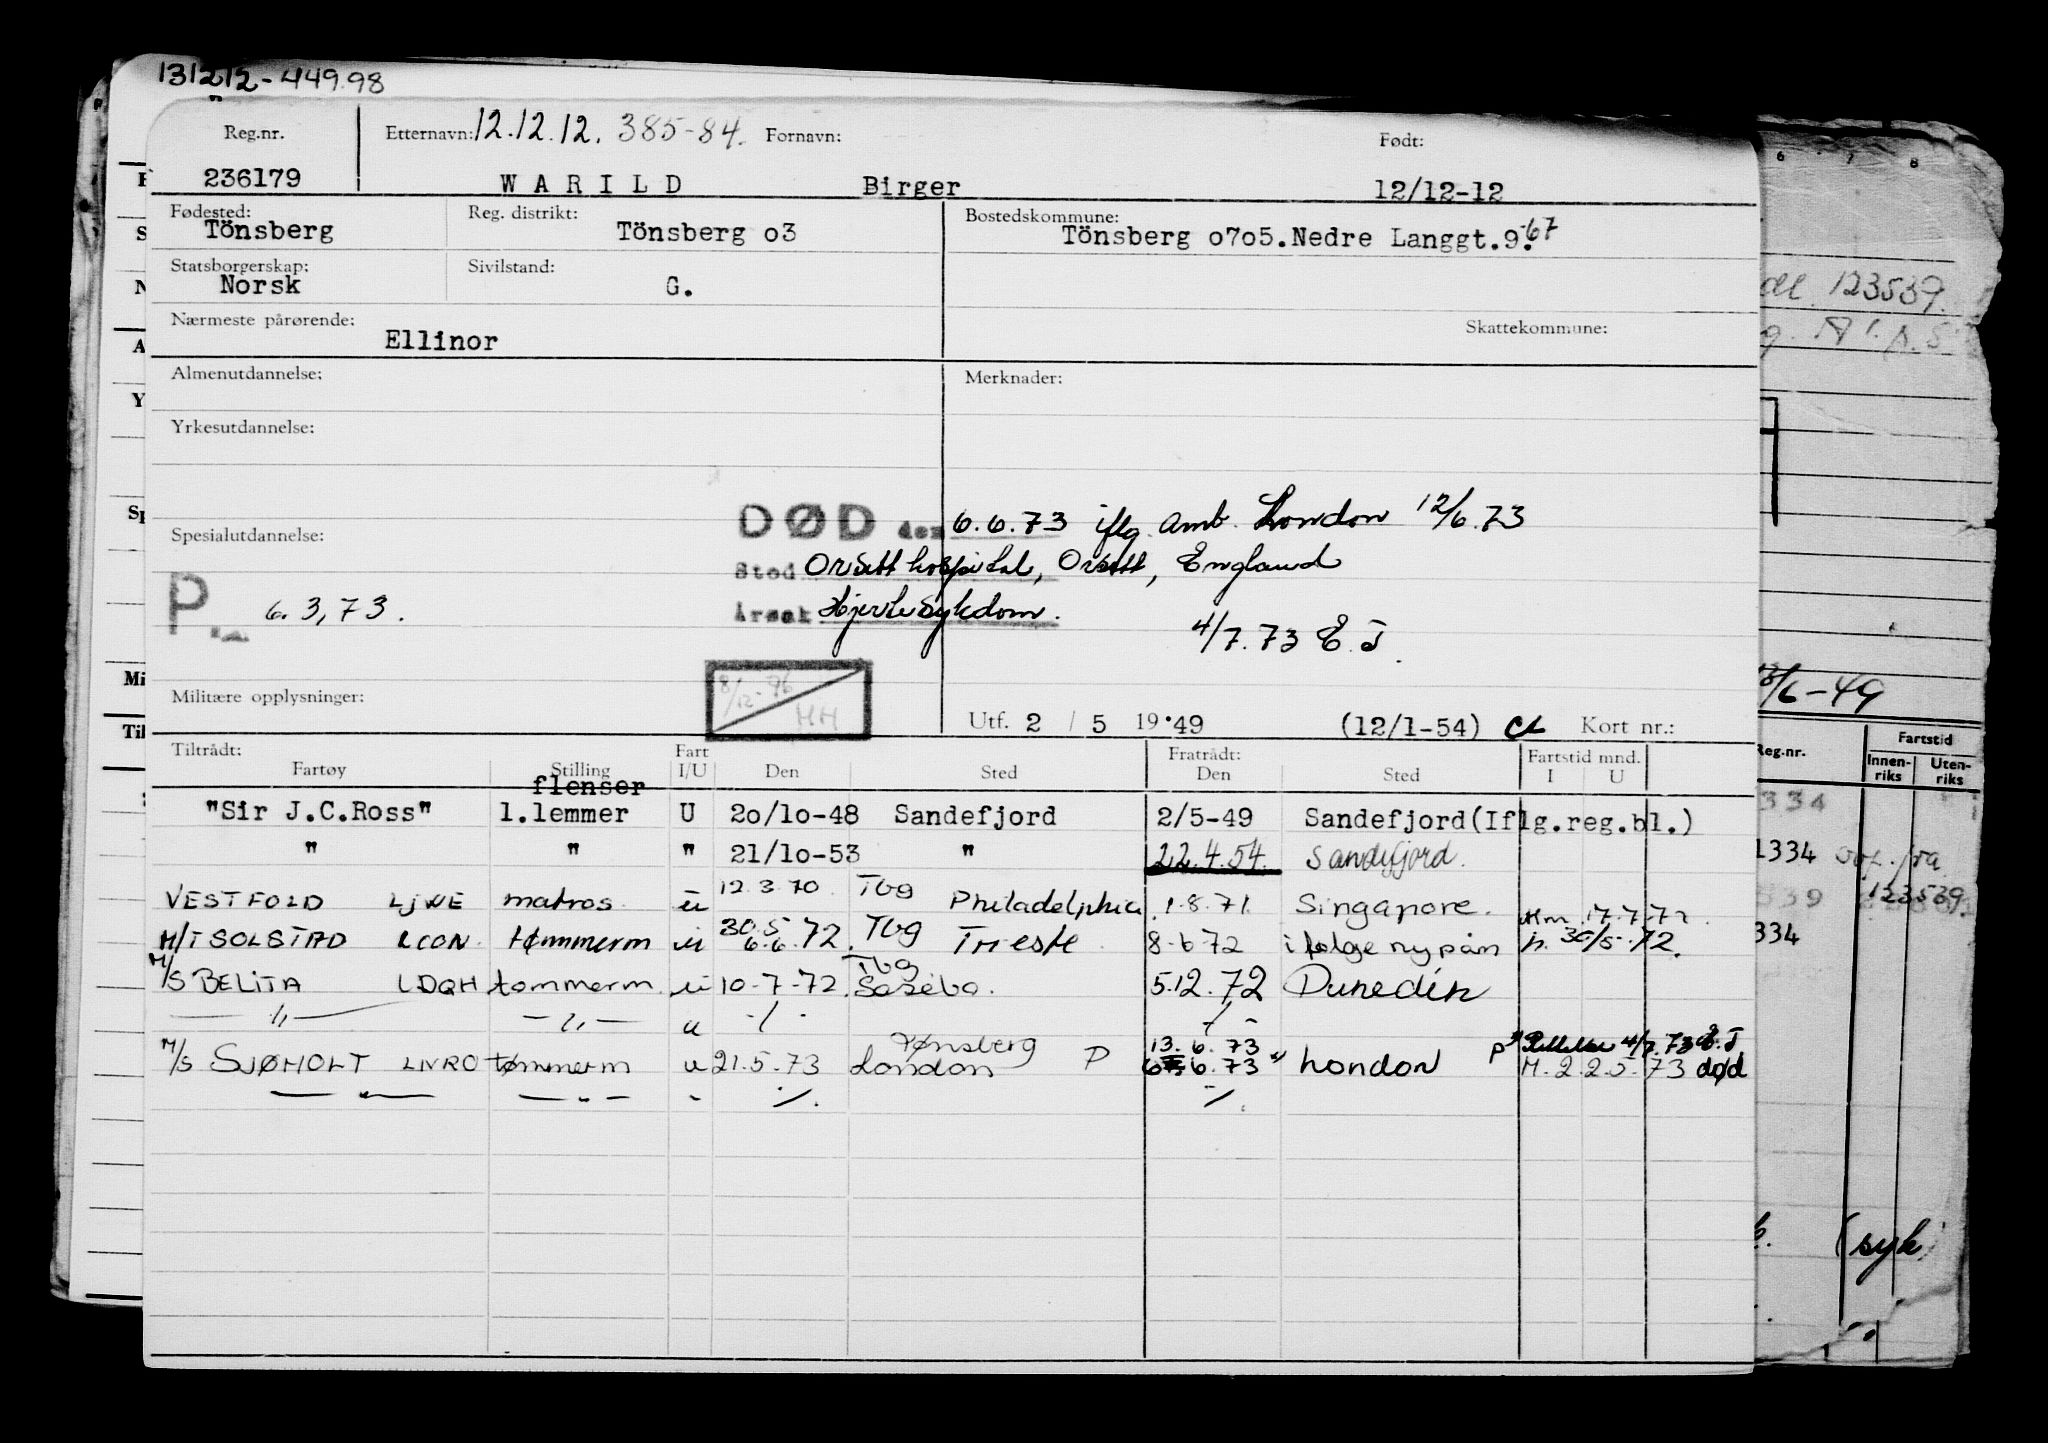 131212-449.98
Reg.nr. Etternavn: 12.12.12. 385-84. Fornavn: Født:
236179 WARILD Birger 12/12-12
Fødested: Reg. distrikt: Bostedskommune:
Tönsberg Tönsberg o3 Tönsberg o7o5.Nedre Langgt.9. 67
Statsborgerskap: Sivilstand:
Norsk G.
Nærmeste pårørende: Skattekommune:
Ellinor
Almenutdannelse: Merknader:
Yrkesutdannelse:
DØD den 6.6.73 iflg. Amb. London 12/6.73
Spesialutdannelse: Sted Orsett hospital, Orsett, England
P. 6.3,73. Årsak Hjertesykdom.
4/7.73 E.J.
8/12-76 HH
Militære opplysninger: Utf. 2 / 5 19 49 (12/1-54) Kort nr.:
Tiltrådt: Fart Fratrådt: Fartstid mnd.
Fartøy Stilling I/U Den Sted Den Sted I U
flenser
"Sir J.C.Ross" l.lemmer U 2o/lo-48 Sandefjord 2/5-49 Sandefjord(Iflg.reg.bl.)
" " " 21/lo-53 " 22.4.54. Sandefjord.
VESTFOLD LJWE matros u 12.3.70 Tbg Philadelphia 1.8.71. Singapore.
30.5 17.7.72.
M/T SOLSTAD LCON tømmerm u 6.6.72. Tbg Trieste 8.6.72 i følge ny pån h. 30/5.72.
Tbg
M/S BELITA LDQH tømmerm. u 10-7-72. Sasebo. 5.12.72 Dunedin
— " — — " — u -/- -/-
Tønsberg 13.6.73 4/7.73 E.J
M/S SJØHOLT LNRO tømmerm u 21.5.73 London P 6.6.73 London M.22.5.73 død
— " — — " — - -/. -/.
123539.
13/6-49
Reg.nr. Fartstid
Innen- Uten-
riks riks
334
1334
123539.
334
(syk)